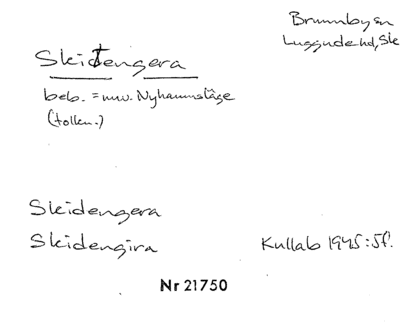 Brunnby sn
Luggude hd, Sk
Skidtengera
beb. = nuv. Nyhamnsläge
(tolkn.)
Skidengera
Skidengira Kullab 1945: 5f.
Nr 21750